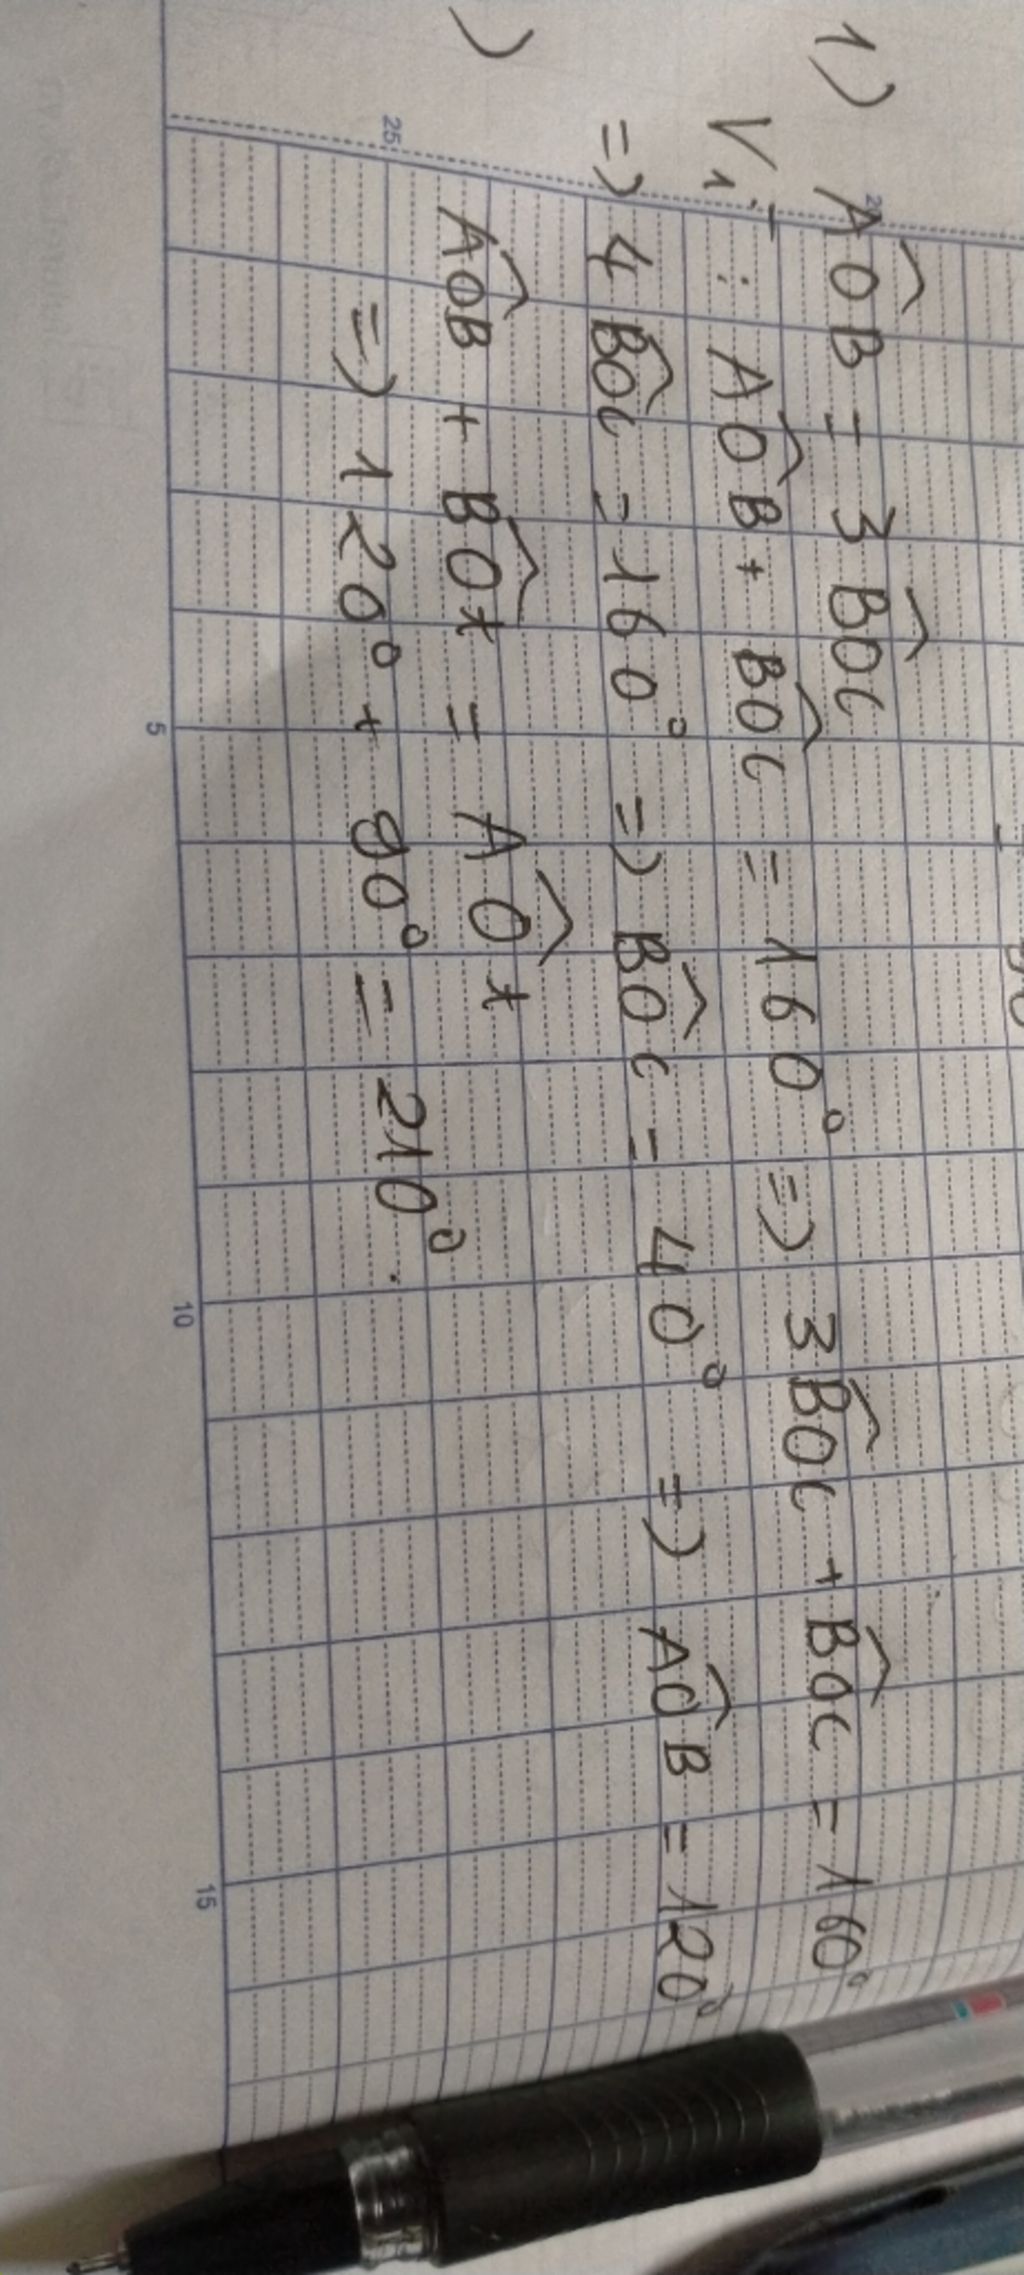 1) AÔB = 3 BÔC
Vì : AÔB + BÔC = 160° => 3BÔC + BÔC = 160°
=> 4 BÔC = 160° => BÔC = 40° => AÔB = 120°
) AÔB + BÔt = AÔt
=> 120° + 90° = 210°.
25
5
10
15